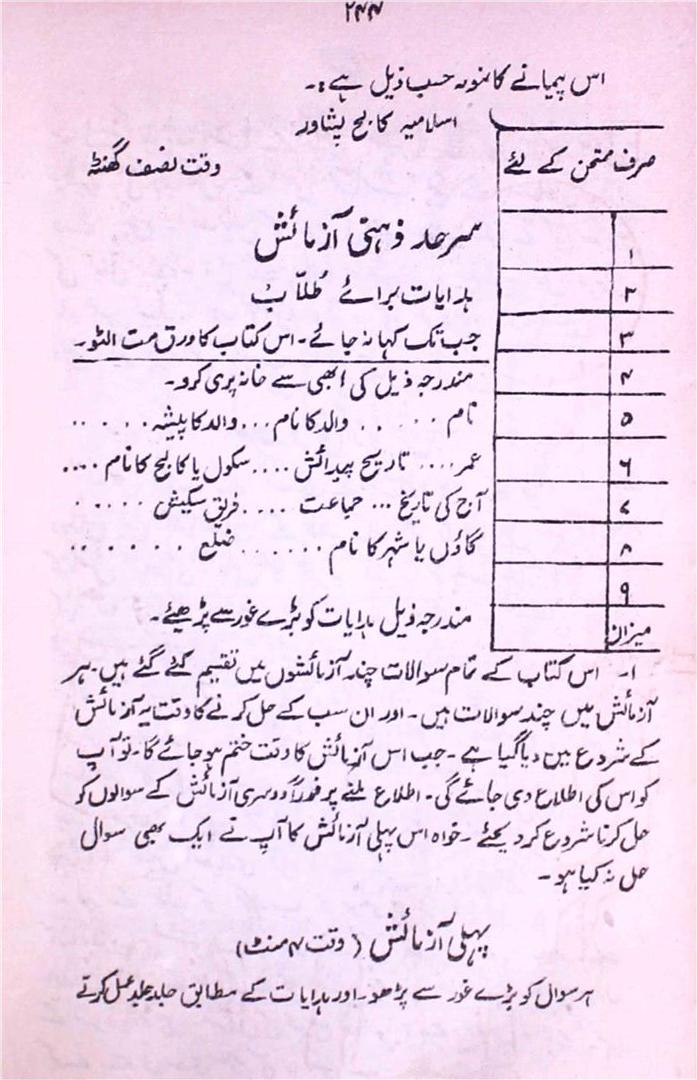 ۲۴۴
اس پیمانے کا نمونہ حسب ذیل ہے:۔
اسلامیہ کالج پشاور
صرف ممتحن کے لئے
وقت نصف گھنٹہ
سرحد ذہنی آزمائش
۱
ہدایات برائے طُلّاب
۲
جب تک کہا نہ جائے۔ اس کتاب کا ورق مت الٹو۔
۳
مندرجہ ذیل کی ابھی سے خانہ پری کرو۔
۴
نام ...... والد کا نام ... والد کا پیشہ .....
۵
عمر .... تاریخ پیدائش .... سکول یا کالج کا نام ....
۶
آج کی تاریخ ... جماعت .... فریق سیکشن .....
۷
گاؤں یا شہر کا نام ....... ضلع .......
۸
۹
مندرجہ ذیل ہدایات کو بڑے غور سے پڑھیئے۔
میزان
۱۔ اس کتاب کے تمام سوالات چند آزمائشوں میں تقسیم کئے گئے ہیں۔ ہر
آزمائش میں چند سوالات ہیں۔ اور ان سب کے حل کرنے کا وقت ہر آزمائش
کے شروع میں دیا گیا ہے۔ جب اس آزمائش کا وقت ختم ہو جائے گا۔ تو آپ
کو اس کی اطلاع دی جائے گی۔ اطلاع ملنے پر فوراً دوسری آزمائش کے سوالوں کو
حل کرنا شروع کر دیجئے۔ خواہ اس پہلی آزمائش کا آپ نے ایک بھی سوال
حل نہ کیا ہو۔
پہلی آزمائش (وقت ۴ منٹ)
ہر سوال کو بڑے غور سے پڑھو۔ اور ہدایات کے مطابق جلد جلد عمل کرتے